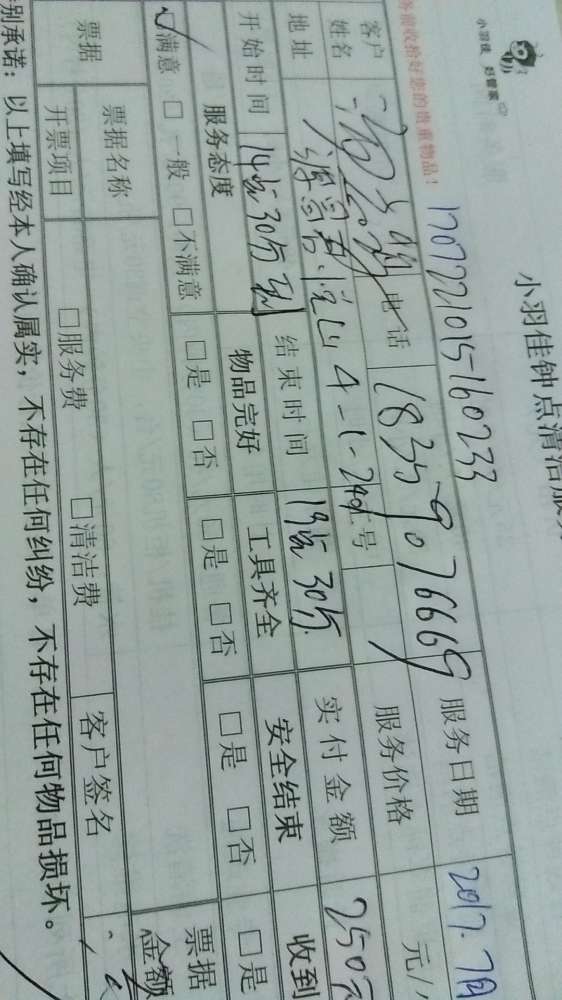 小羽佳 好管家
小羽佳钟点清洁服务
务前收拾好您的贵重物品！ 17072210151160233
客户姓名 电话 18359076669 服务日期 2017.7月
地址 4-1-2401 工号 服务价格 元/
开始时间 14点30分到 结束时间 19点30分 实付金额 250元
服务态度 物品完好 工具齐全 安全结束 收到
☑满意 □一般 □不满意 □是 □否 □是 □否 □是 □否 □是
票据 票据名称 票据金额
开票项目 □服务费 □清洁费 客户签名
别承诺：以上填写经本人确认属实，不存在任何纠纷，不存在任何物品损坏。